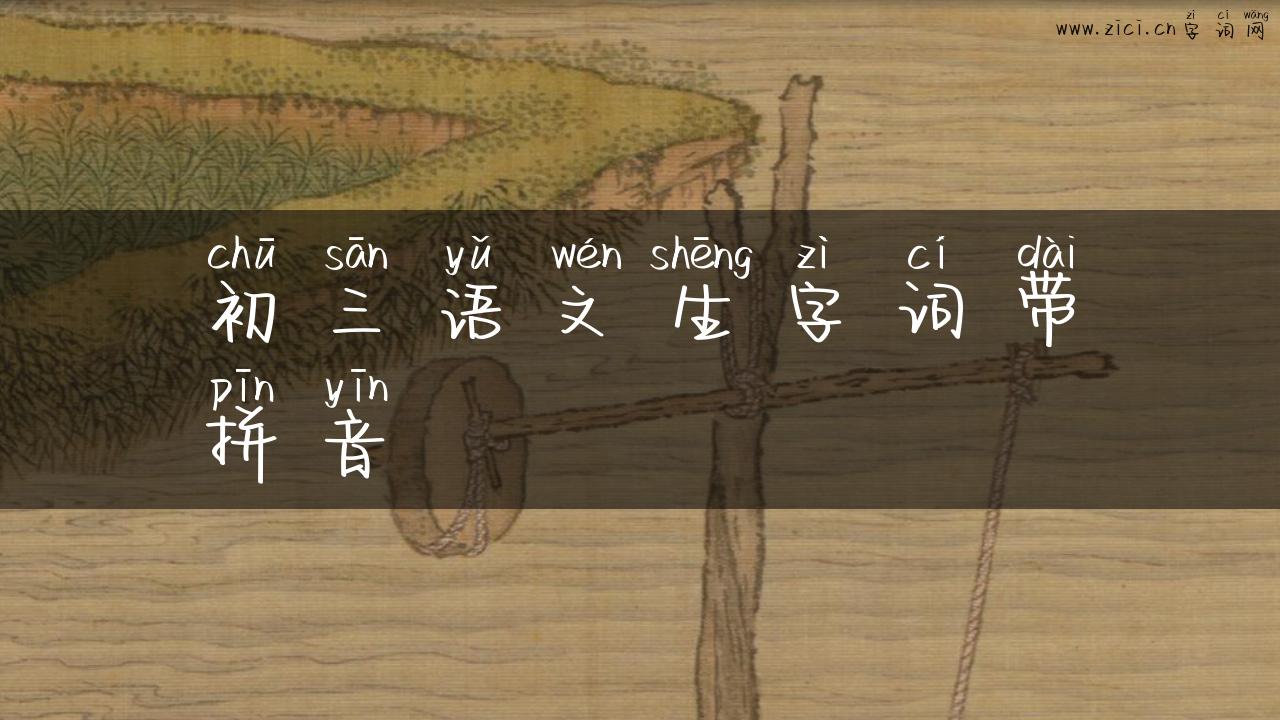 zì cí wǎng
www.zici.cn字词网
chū sān yǔ wén shēng zì cí dài
初三语文生字词带
pīn yīn
拼音